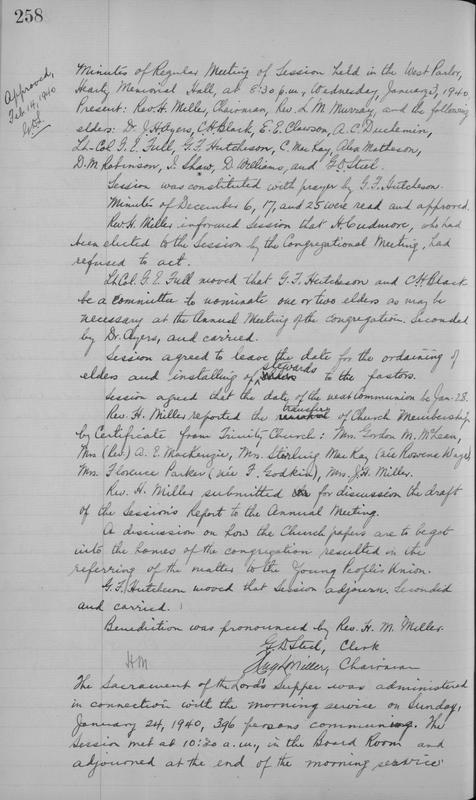 258
Approved,
Feb. 14, 1940
Minutes of Regular Meeting of Session held in the West Parlor,
Heartz Memorial Hall, at 8:30 p.m., Wednesday, January 3, 1940.
Present: Rev. H. Miller, Chairman, Rev. L. M. Murray, and the following
elders: Dr. J. H. Ayers, C. H. Black, E. E. Clawson, A. C. Duchemin,
Lt-Col. G. E. Full, G. F. Hutcheson, C. MacKay, Alex Matheson,
D. M. Robinson, I. Shaw, D. Williams, and G. D. Steel.
Session was constituted with prayer by G. F. Hutcheson.
Minutes of December 6, 17, and 25 were read and approved.
Rev. H. Miller informed Session that H. Cudmore, who had
been elected to the Session by the Congregational Meeting, had
refused to act.
Lt. Col. G. E. Full moved that G. F. Hutcheson and C. H. Black
be a committee to nominate one or two elders as may be
necessary at the Annual Meeting of the congregation. Seconded
by Dr. Ayers, and carried.
Session agreed to leave the date for the ordaining of
elders and installing of stewards to the pastors.
Session agreed that the date of the next Communion be Jan. 28.
Rev. H. Miller reported the transfers of Church Membership
by Certificate from Trinity Church: Mrs. Gordon M. McLean,
Mrs (Rev.) A. E. MacKenzie, Mrs. Sterling MacKay (née Rowena Waye),
Mrs. Florence Parker (née F. Godkin), Mrs. J. H. Miller.
Rev. H. Miller submitted for discussion the draft
of the Session's Report to the Annual Meeting.
A discussion on how the Church papers are to be got
into the homes of the congregation resulted in the
referring of the matter to the Young People's Union.
G. F. Hutcheson moved that Session adjourn. Seconded
and carried.
Benediction was pronounced by Rev. H. M. Miller.
G. D. Steel, Clerk
HM
Hugh Miller, Chairman
The Sacrament of the Lord's Supper was administered
in connection with the morning service on Sunday,
January 24, 1940, 396 persons communing. The
Session met at 10:30 a.m., in the Board Room and
adjourned at the end of the morning service